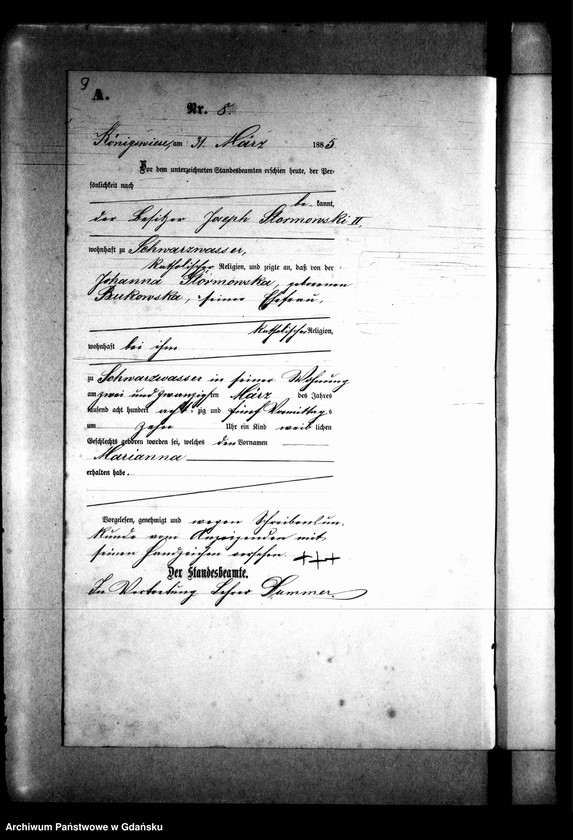 9
A.
Nr. 8.
Königswiese, am 31. März 1885
Vor dem unterzeichneten Standesbeamten erschien heute, der Per-
sönlichkeit nach
be- kannt,
der Besitzer Joseph Stormowski II,
wohnhaft zu Schwarzwasser,
katholischer Religion, und zeigte an, daß von der
Johanna Stormowska, geborenen
Bukowska, seiner Ehefrau,
katholischer Religion,
wohnhaft bei ihm
zu Schwarzwasser in seiner Wohnung
am zwei und zwanzigsten März des Jahres
tausend acht hundert acht- zig und fünf Vormittags
um zehn Uhr ein Kind weib lichen
Geschlechts geboren worden sei, welches den Vornamen
Marianna
erhalten habe.
Vorgelesen, genehmigt und wegen Schreibensun-
kunde vom Anzeigenden mit
seinen Handzeichen versehen. +++
Der Standesbeamte.
In Vertretung Lehrer Dammer
Archiwum Państwowe w Gdańsku